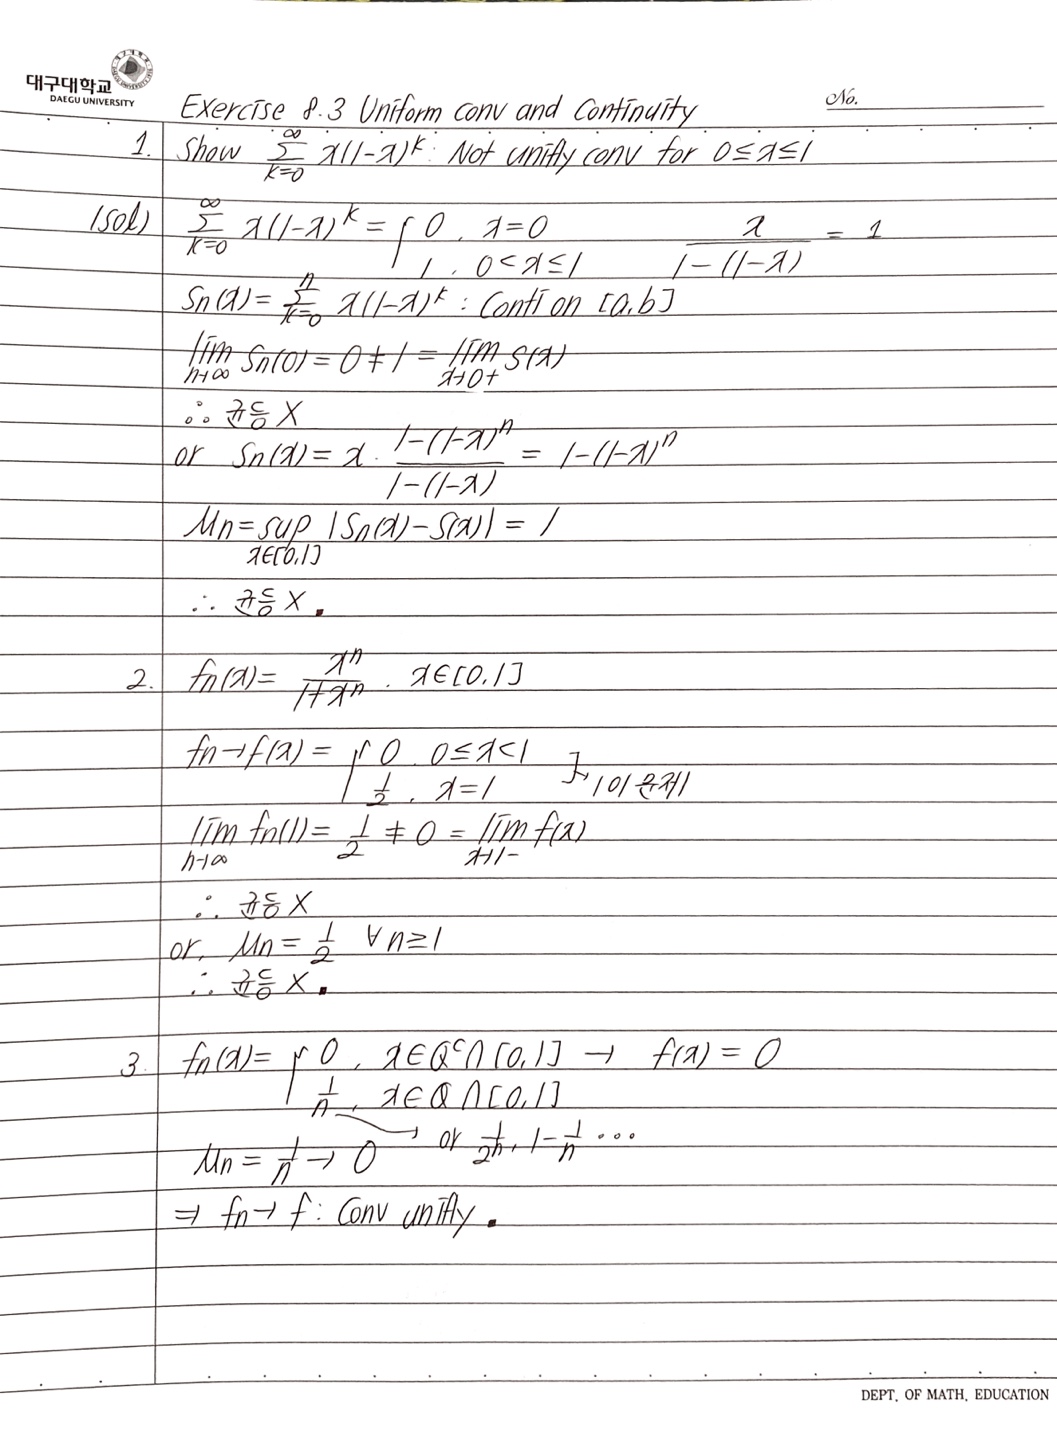 대구대학교
DAEGU UNIVERSITY
No.
Exercise 8.3 Uniform conv and Continuity
1. Show ∑_{k=0}^{∞} x(1-x)^k : Not unifly conv for 0≤x≤1
(sol) ∑_{k=0}^{∞} x(1-x)^k = { 0 , x=0    x/(1-(1-x)) = 1
1 , 0<x≤1
Sn(x) = ∑_{k=0}^{n} x(1-x)^k : Conti on [a,b]
lim_{n→∞} Sn(0) = 0 ≠ 1 = lim_{x→0+} S(x)
∴ 균등 X
or Sn(x) = x · (1-(1-x)^n)/(1-(1-x)) = 1-(1-x)^n
Mn = sup_{x∈[0,1]} |Sn(x)-S(x)| = 1
∴ 균등 X ▪
2. fn(x) = x^n/(1+x^n) . x∈[0,1]
fn→f(x) = { 0 . 0≤x<1
1/2 , x=1    }→ 1이 문제
lim_{n→∞} fn(1) = 1/2 ≠ 0 = lim_{x→1-} f(x)
∴ 균등 X
or, Mn = 1/2 ∀n≥1
∴ 균등 X ▪
3. fn(x) = { 0 , x∈Q^c∩[0,1] → f(x) = 0
1/n , x∈Q∩[0,1]
→ or 1/2n, 1-1/n ...
Mn = 1/n → 0
⇒ fn→f : Conv unifly ▪
DEPT. OF MATH. EDUCATION